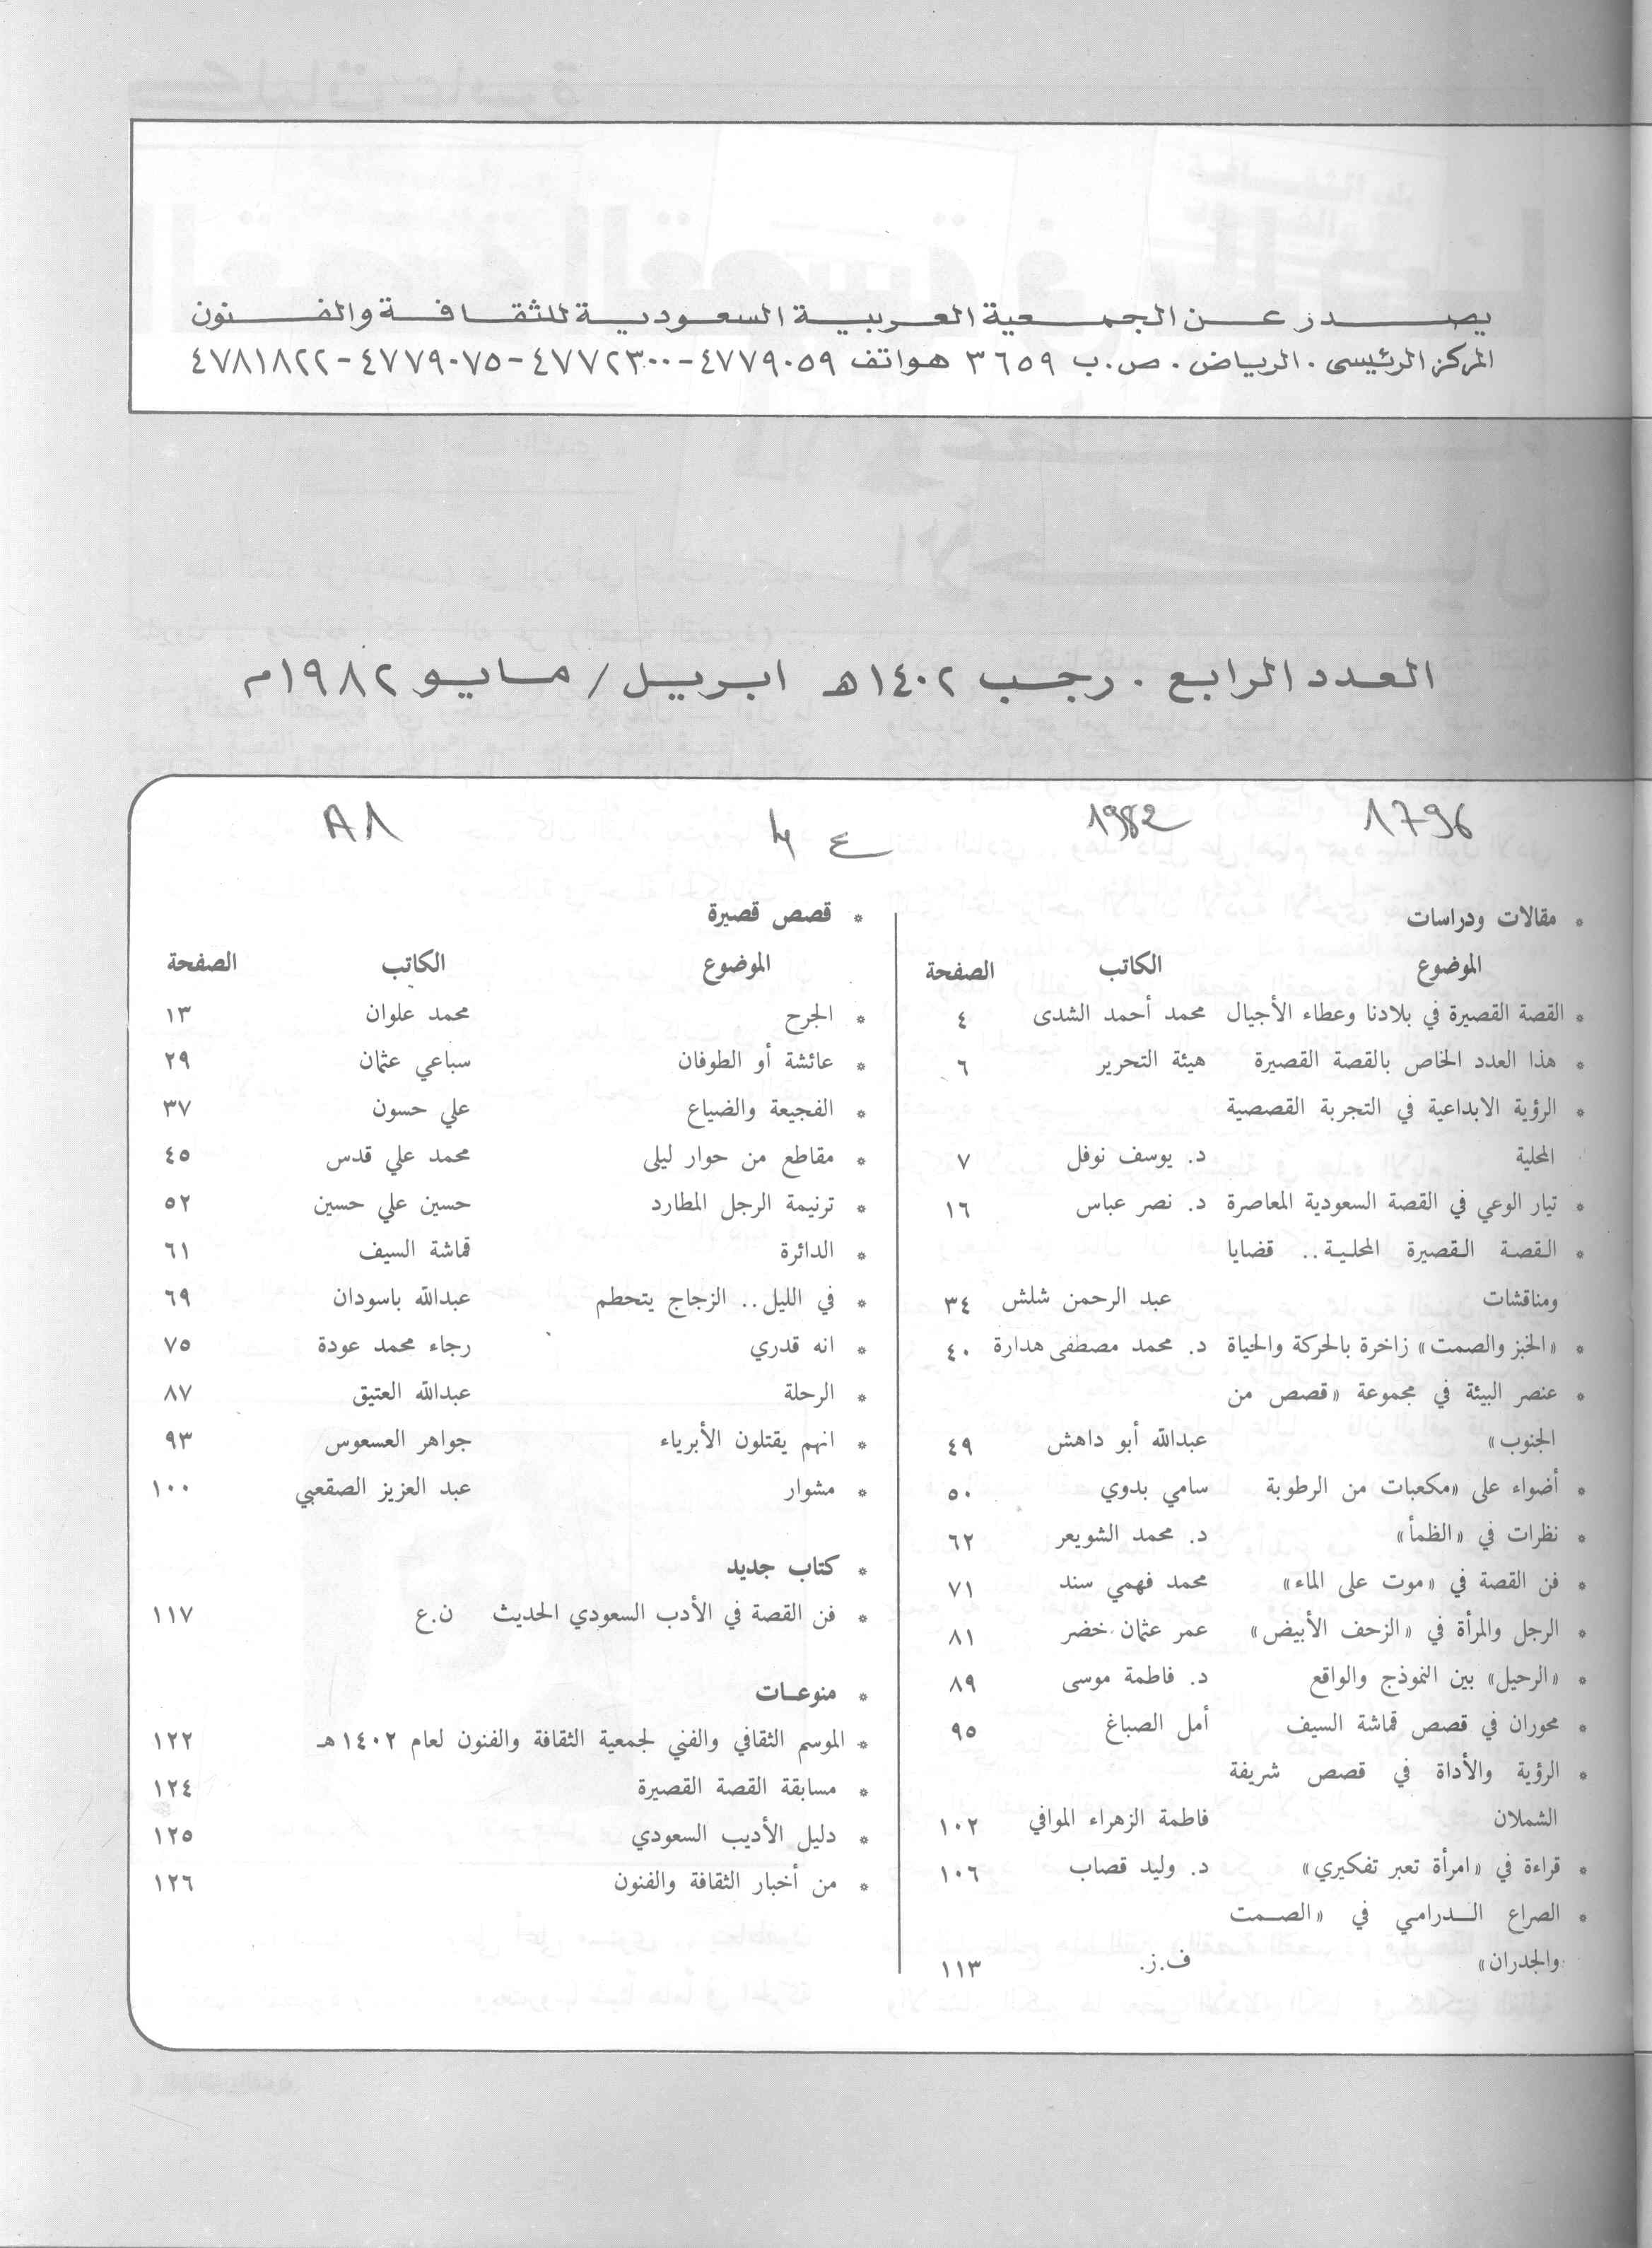 يصدر عن الجمعية العربية السعودية للثقافة والفنون
المركز الرئيسى . الرياض . ص.ب ٣٦٥٩ هواتف ٤٧٧٩٠٥٩-٤٧٧٢٣٠٠-٤٧٧٩٠٧٥-٤٧٨١٨٢٢
العدد الرابع . رجب ١٤٠٢هـ ابريل / مايو ١٩٨٢م
1796
1982
* مقالات ودراسات
الموضوع الكاتب الصفحة
* القصة القصيرة في بلادنا وعطاء الأجيال محمد أحمد الشدى ٤
* هذا العدد الخاص بالقصة القصيرة هيئة التحرير ٦
* الرؤية الابداعية في التجربة القصصية
المحلية د. يوسف نوفل ٧
* تيار الوعي في القصة السعودية المعاصرة د. نصر عباس ١٦
* القصة القصيرة المحلية.. قضايا
ومناقشات عبد الرحمن شلش ٣٤
* «الخبز والصمت» زاخرة بالحركة والحياة د. محمد مصطفى هدارة ٤٠
* عنصر البيئة في مجموعة «قصص من
الجنوب» عبدالله أبو داهش ٤٩
* أضواء على «مكعبات من الرطوبة سامي بدوي ٥٠
* نظرات في «الظمأ» د. محمد الشويعر ٦٢
* فن القصة في «موت على الماء» محمد فهمي سند ٧١
* الرجل والمرأة في «الزحف الأبيض» عمر عثمان خضر ٨١
* «الرحيل» بين النموذج والواقع د. فاطمة موسى ٨٩
* محوران في قصص قماشة السيف أمل الصباغ ٩٥
* الرؤية والأداة في قصص شريفة
الشملان فاطمة الزهراء الموافي ١٠٢
* قراءة في «امرأة تعبر تفكيري» د. وليد قصاب ١٠٦
* الصراع الدرامي في «الصمت
والجدران» ف.ز. ١١٣
* قصص قصيرة
الموضوع الكاتب الصفحة
* الجرح محمد علوان ١٣
* عائشة أو الطوفان سباعي عثمان ٢٩
* الفجيعة والضياع علي حسون ٣٧
* مقاطع من حوار ليلى محمد علي قدس ٤٥
* ترنيمة الرجل المطارد حسين علي حسين ٥٢
* الدائرة قماشة السيف ٦١
* في الليل.. الزجاج يتحطم عبدالله باسودان ٦٩
* انه قدري رجاء محمد عودة ٧٥
* الرحلة عبدالله العتيق ٨٧
* انهم يقتلون الأبرياء جواهر العسعوس ٩٣
* مشوار عبد العزيز الصقعبي ١٠٠
* كتاب جديد
* فن القصة في الأدب السعودي الحديث ن.ع ١١٧
* منوعات
* الموسم الثقافي والفني لجمعية الثقافة والفنون لعام ١٤٠٢هـ ١٢٢
* مسابقة القصة القصيرة ١٢٤
* دليل الأديب السعودي ١٢٥
* من أخبار الثقافة والفنون ١٢٦